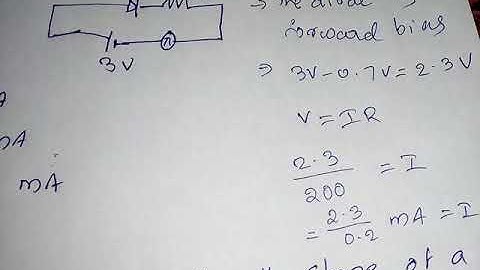 ⇒ the diode is
forward bias
3V
⇒ 3V-0.7V=2.3V
V=IR
mA
2.3/200 = I
= 2.3/0.2 mA = I
of a